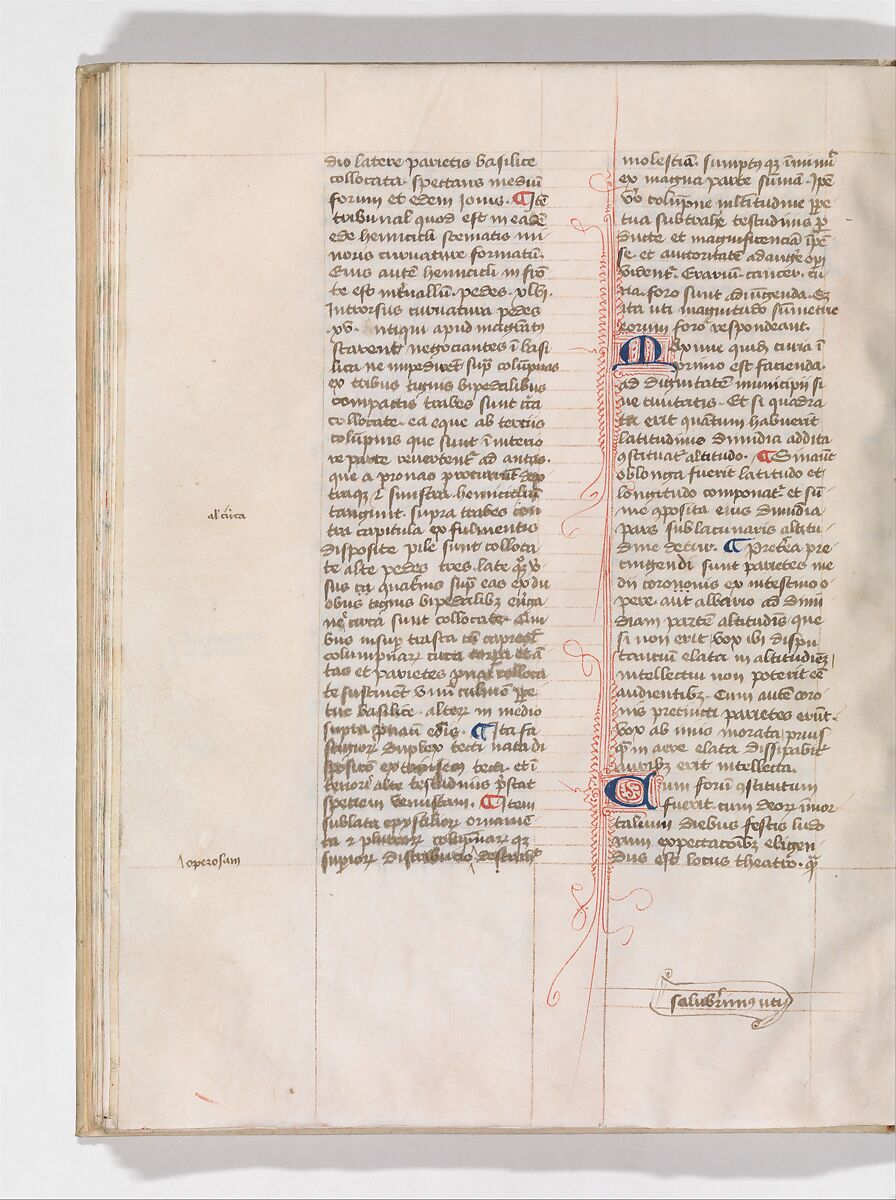 dio latere parietis basilice
collocata. spectans mediū
forum et edem Iouis. ¶ Itē
tribunal quod est in eadē
ede hemicicli scematis mi
noris curuature formatū.
Eius autē hemicicli in frō
te est int̄uallū. pedes. xlvi.
Introrsus curuatura pedes
xv. utiqui apud magr̄atꝰ
starent negociantes ī basi
lica ne impedirēt sup̄ colūpnas
ex tribus tignis bipedalibus
compactis trabes sunt cc̄a
collocate. ea eque ab tertiis
colūpnis que sunt ī interio
re parte reuertentᷣ ad antas.
que a pronao
 et sinistra hemiciclū
tangunt. supra trabes con
tra capitula ex fulmentis
disposite pile sunt colloca
te alte pedes tres. late
sus supra eas ex du
obus tignis bipedalibꝫ
 circa sunt collocate.
bus insup̄ trāstra cū capreol
columpnarꝝ circa
tas et parietes colloca
te sustinēt vnū culmē ꝑpe
tue basilice. alterꝝ in medio
supra ꝓnaū edis. ¶ Ita fa
 duplex tecti nata di
 tecti. et ī
 alte testudinis p̄stat
speciem venustam. ¶ Item
sublata epystiliorꝝ orname̅
ta et pluteorꝝ colūpnarꝝ qꝫ
supiorꝝ distributio
al' circa
operosam
molestiā. sumptꝰ qꝫ īminuit
ex magna parte sūmā. Ipē
v̄o colūpne īaltitudine ꝑpe
tua sub trabe testudinis ꝑ
ducte et magnificenciā īpē
se. et auctoritatē adauge
vident̄. Erariū. carcer. cu
ria. foro sunt adiūgenda. Sꝫ
ita uti magnitudo sūmetrie
eorum foro respondeant.
Maxime quidē curia ī
primis est facienda.
ad dignitatem municipii si
ue ciuitatis. Et si quadra
ta erit quātum habuerit
latitudinis dimidia addita
ꝯstituat̄ altitudo. ¶ Sinaūt
oblonga fuerit latitudo et
longitudo componat̄. et sū
me ꝯposita eius dimidia
pars sub lacunariis altitu
dine detur. ¶ Pret̄ea pre
cingendi sunt parietes me
dii coroniis ex intestino o
pere. aut albario ad dimi
diam partē altitudis que
si non erit vox ibi dispu
tanciū elata in altitudiēꝫ
intellectui non poterit eē
audientibꝫ. Cum autē coro
nis precincti parietes erūt.
Vox ab imis morata. prius
qᷓ in aere elata dissipabitᷣ
auribꝫ erit intellecta.
Cum forū ꝯstitutum
fuerit. tum deorꝝ īmor
talium diebus festis ludo
rum expectacōibꝫ eligen
dus est locus theatro. qᷓ
salub̄rimus uti